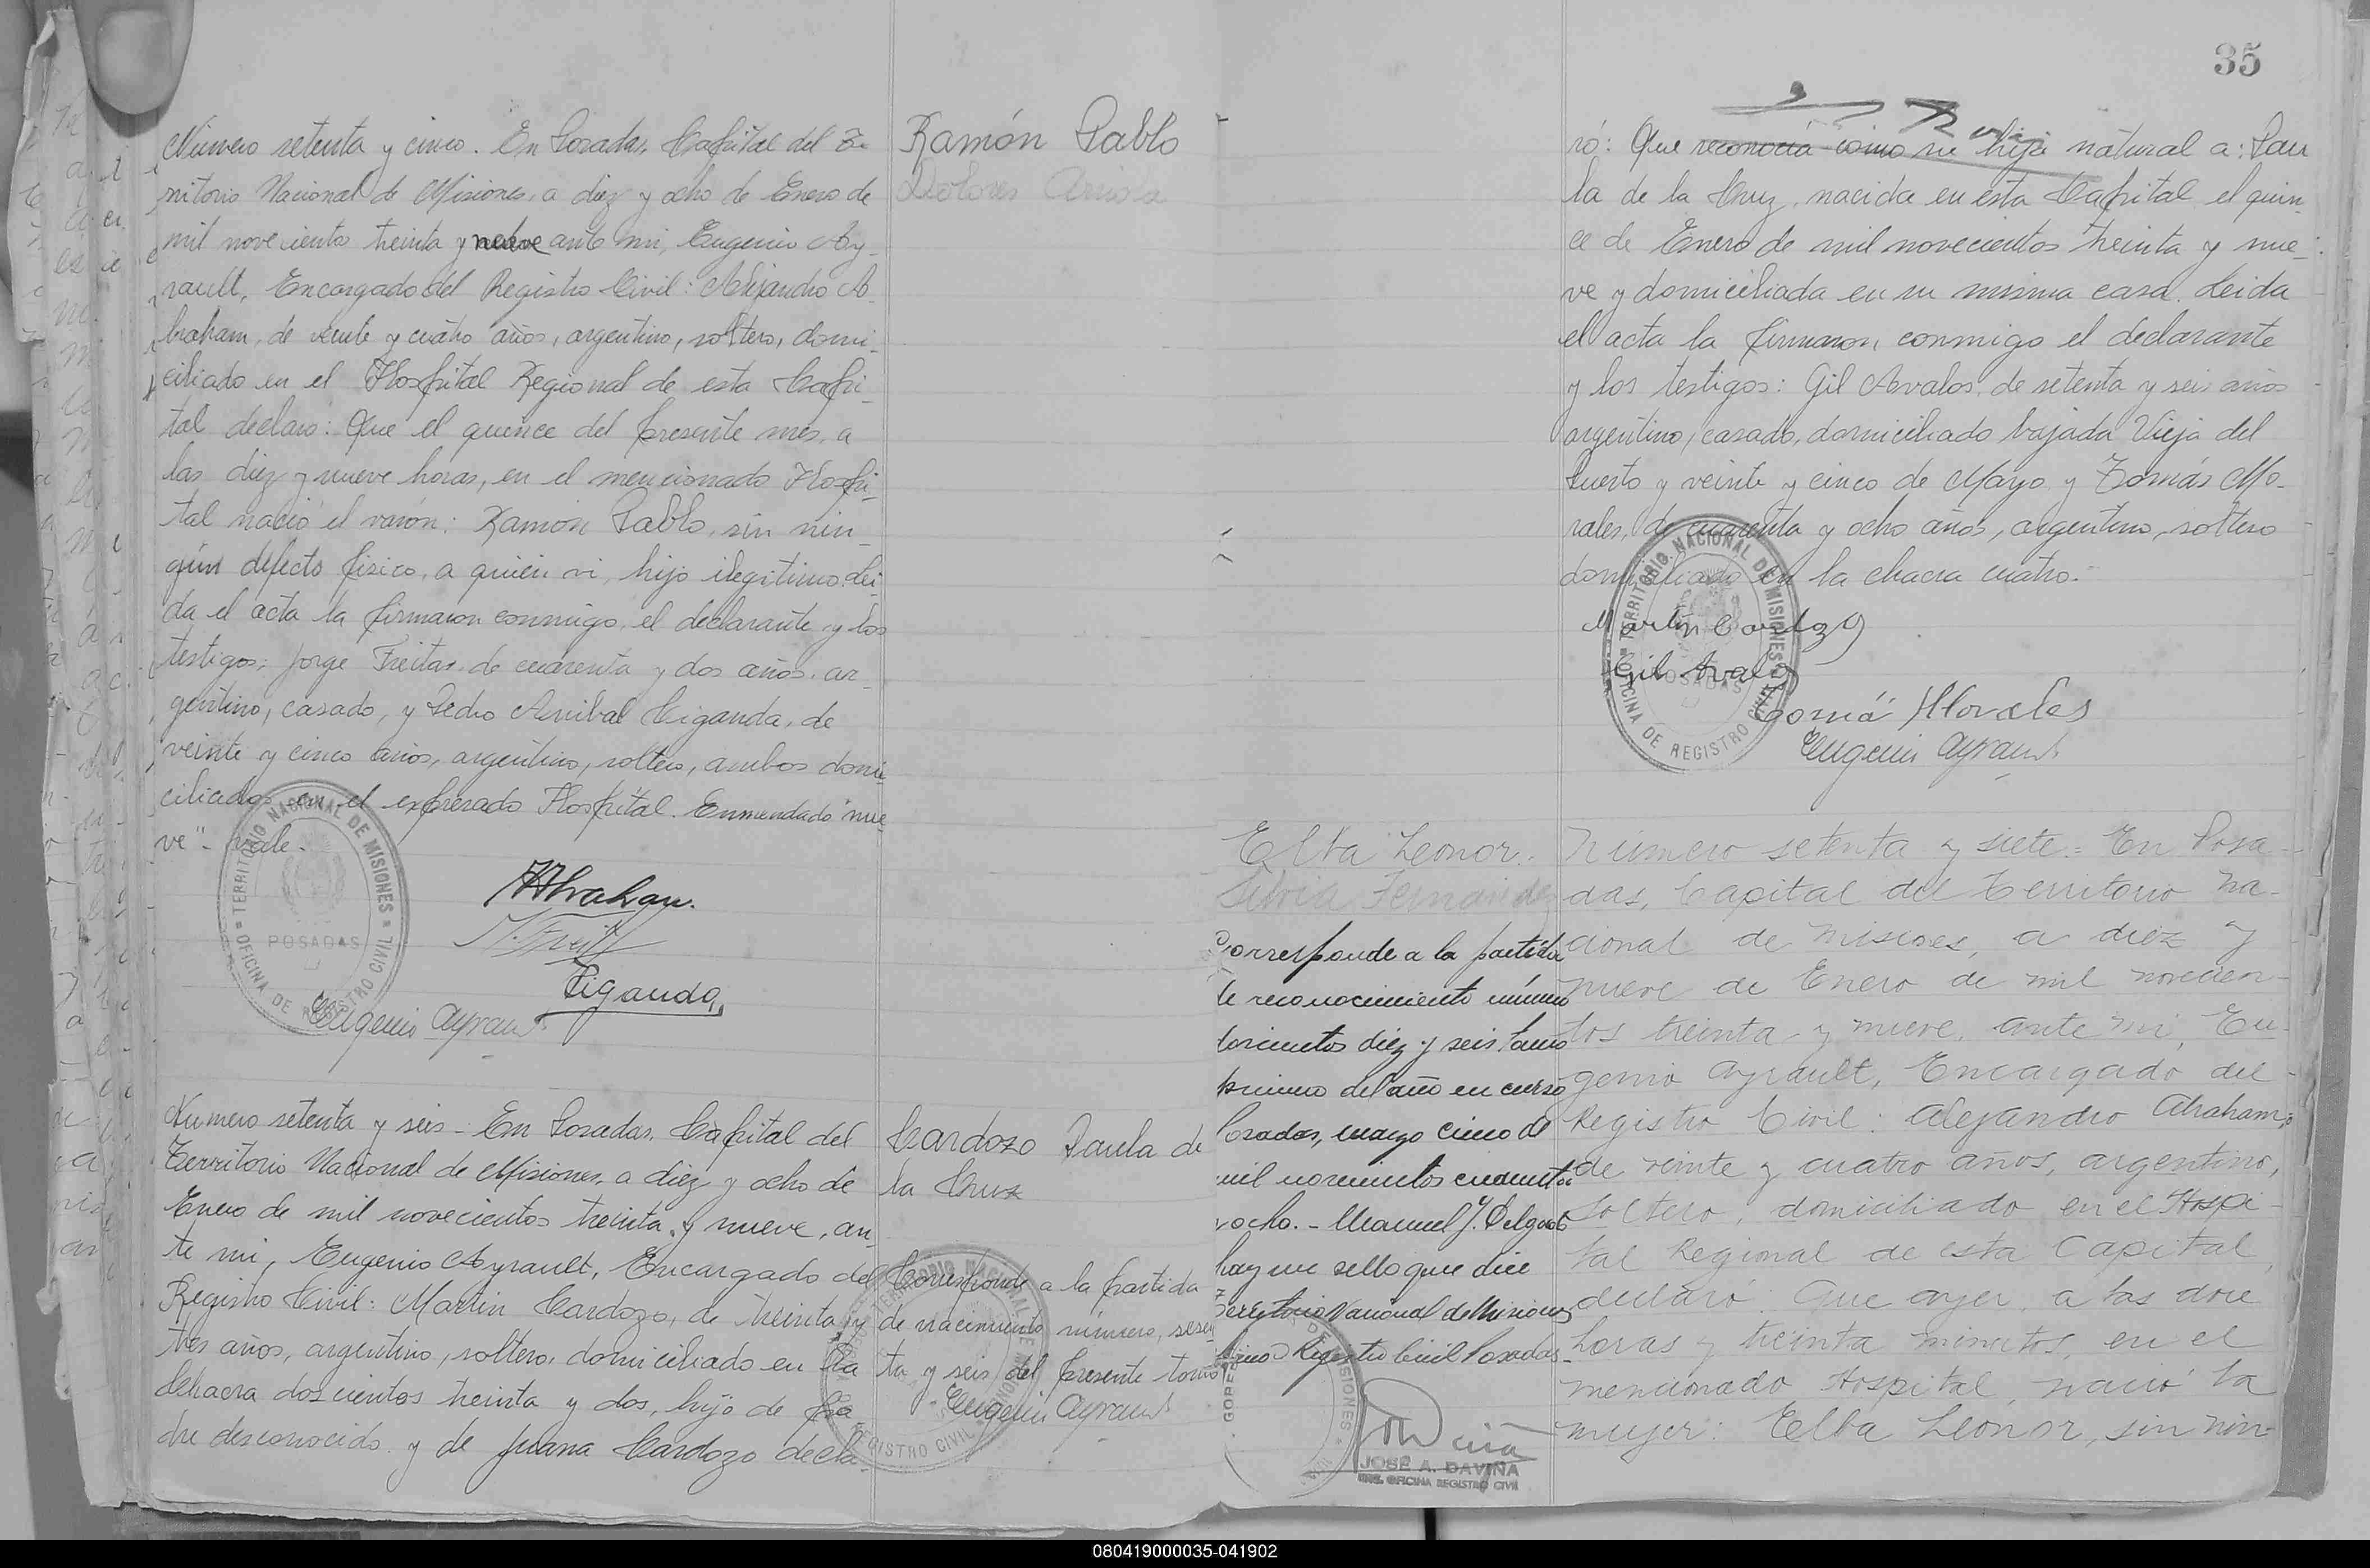 Número setenta y cinco. En Posadas, Capital del Te-
rritorio Nacional de Misiones, a diez y ocho de Enero de
mil novecientos treinta y nueve ante mi, Eugenio Ay-
rault, Encargado del Registro Civil: Alejandro A-
braham, de veinte y cuatro años, argentino, soltero, domi-
ciliado en el Hospital Regional de esta Capi-
tal declaró: Que el quince del presente mes, a
las diez y nueve horas, en el mencionado Hospi-
tal nació el varón: Ramón Pablo, sin nin-
gún defecto fisico, a quien vi, hijo ilegitimo. Lei-
da el acta la firmaron conmigo, el declarante y los
testigos: Jorge Freitas, de cuarenta y dos años, ar-
gentino, casado, y Pedro Anibal Ciganda, de
veinte y cinco años, argentino, soltero, ambos domi-
ciliados en el expresado Hospital. Enmendado "nue-
ve" - Vale.
Ramón Pablo
Dolores
AAbraham.
Ciganda
Eugenio Ayrault
TERRITORIO NACIONAL DE MISIONES
POSADAS
OFICINA DE REGISTRO CIVIL
Numero setenta y seis - En Posadas, Capital del
Territorio Nacional de Misiones, a diez y ocho de
Enero de mil novecientos treinta y nueve, an-
te mi, Eugenio Ayrault, Encargado del
Registro Civil: Martin Cardozo, de treinta y
tres años, argentino, soltero, domiciliado en la
chacra doscientos treinta y dos, hijo de pa-
dre desconocido y de Juana Cardozo decla-
Cardozo Paula de
la Cruz
Corresponde a la partida
de nacimiento número, sesen
ta y seis del presente tomo
Eugenio Ayrault
35
ró: Que reconocia como su hija natural a: Pau
la de la Cruz, nacida en esta Capital el quin-
ce de Enero de mil novecientos treinta y nue-
ve y domiciliada en su misma casa. Leida
el acta la firmaron conmigo el declarante
y los testigos: Gil Avalos, de setenta y seis años
argentino, casado, domiciliado bajada Vieja del
Puerto y veinte y cinco de Mayo y Tomás Mo-
rales, de cuarenta y ocho años, argentino, soltero
domiciliado en la chacra cuatro.-
Martin Cardozo
Gil Avalos
Tomá Morales
Eugenio Ayrault
TERRITORIO NACIONAL DE MISIONES
POSADAS
OFICINA DE REGISTRO CIVIL
Elba Leonor.
Silvia Fernandez
Corresponde a la partida
de reconocimiento número
doscientos diez y seis tomo
primero del año en curso
Posadas, marzo cinco de
mil novecientos cuarenta
y ocho. - Manuel J. Delgado
hay un sello que dice
Territorio Nacional de Misiones
Registro Civil Posadas
JOSE A. DAVIÑA
OFICINA REGISTRO CIVIL
Número setenta y siete = En Posa-
das, Capital del Territorio Na-
cional de Misiones, a diez y
nueve de Enero de mil novecien-
tos treinta y nueve, ante mi, Eu-
genio Ayrault, Encargado del
Registro Civil: Alejandro Abraham,
de veinte y cuatro años, argentino,
soltero, domiciliado en el Hospi-
tal Regional de esta Capital,
declaró: Que ayer a las doce
horas y treinta minutos, en el
mencionado Hospital, nació la
mujer: Elba Leonor, sin nin-
080419000035-041902